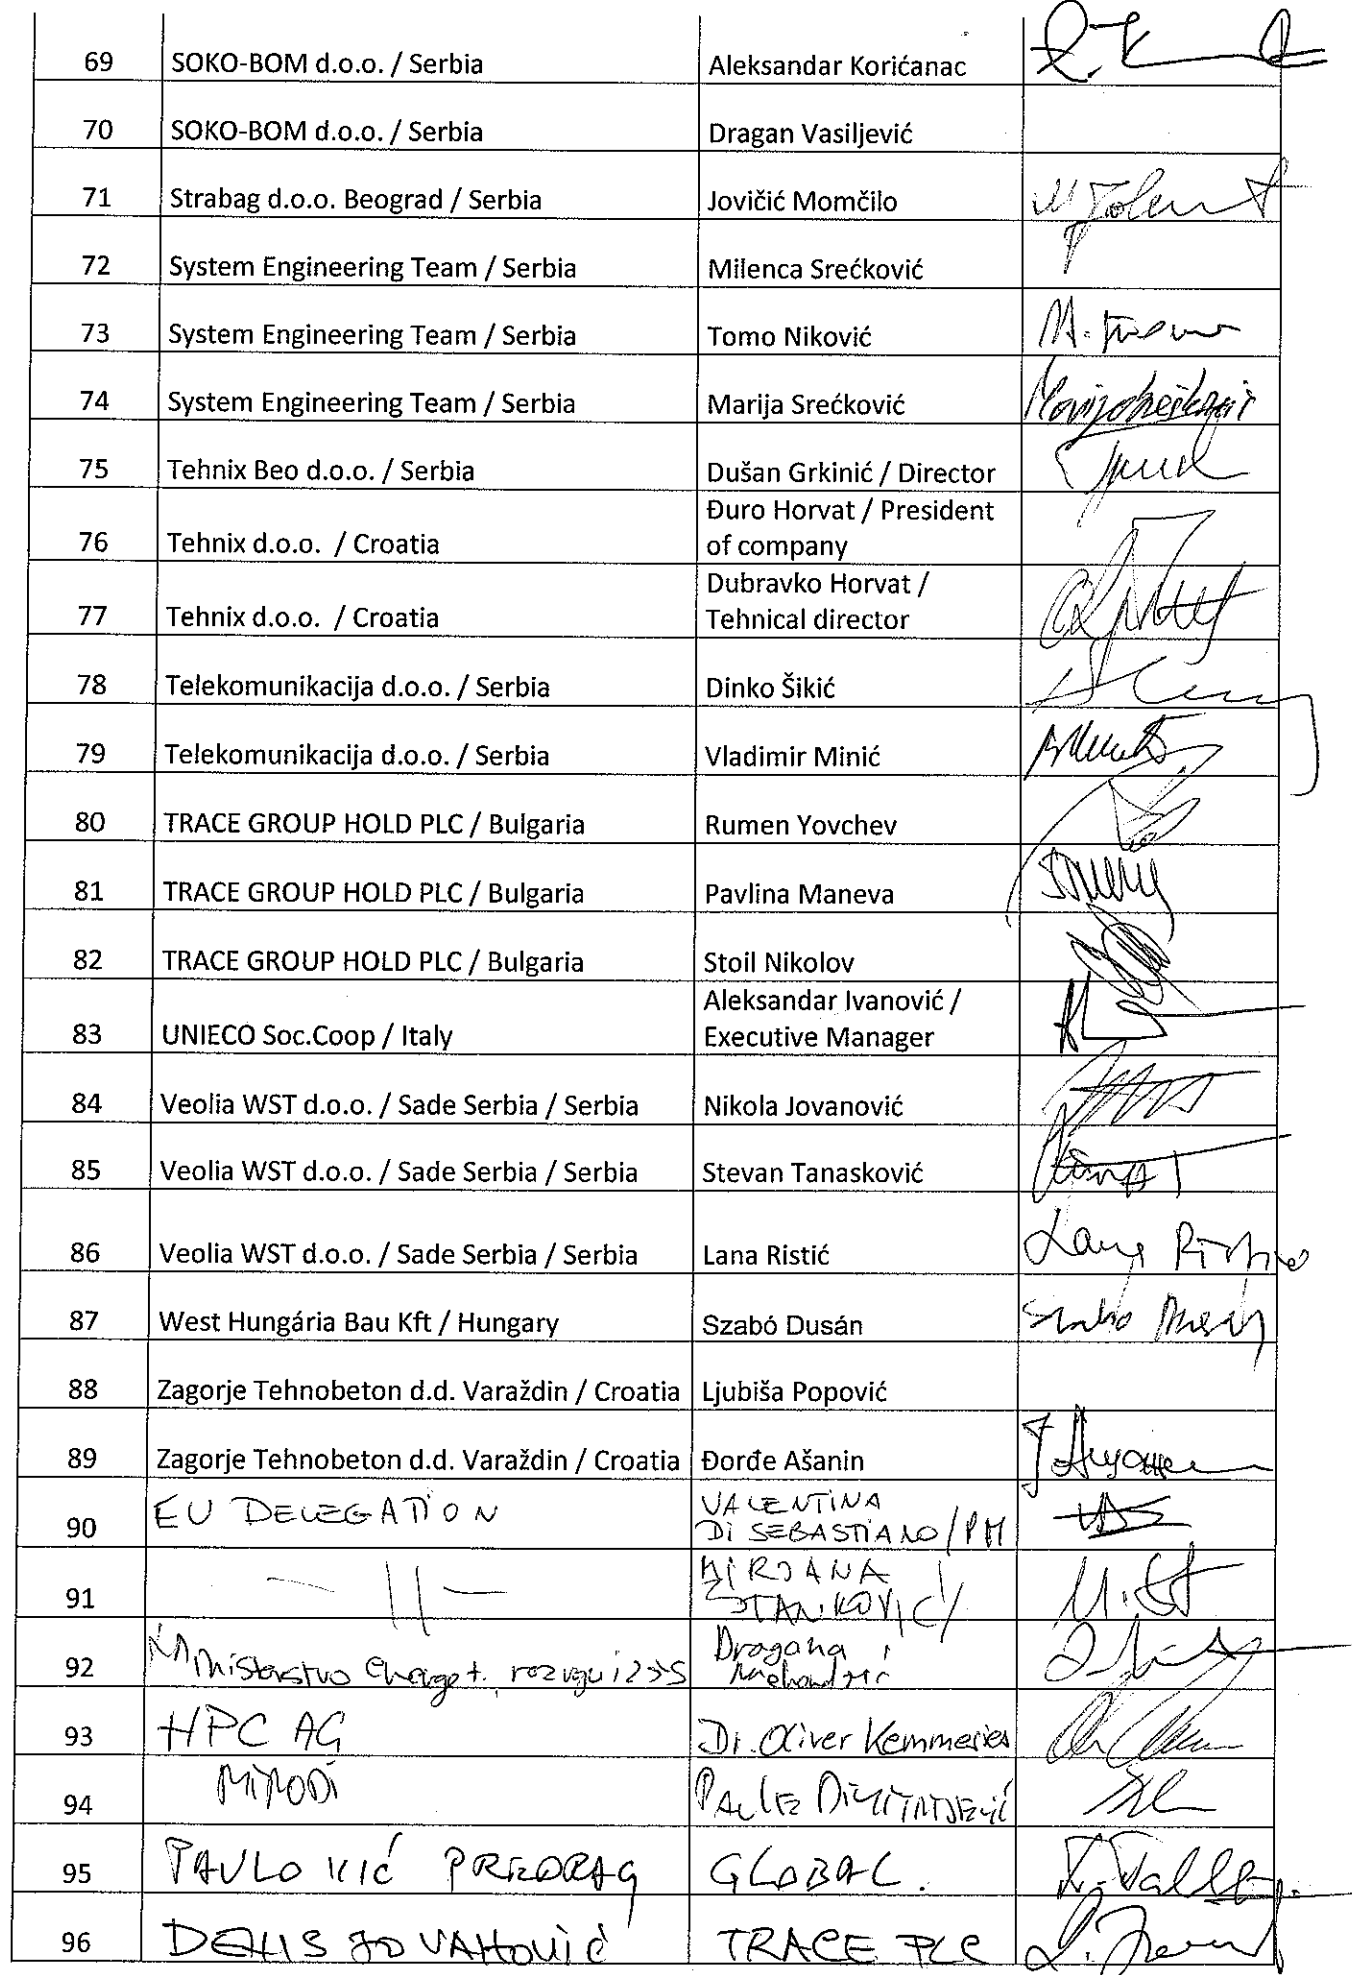 69 SOKO-BOM d.o.o. / Serbia Aleksandar Korićanac
70 SOKO-BOM d.o.o. / Serbia Dragan Vasiljević
71 Strabag d.o.o. Beograd / Serbia Jovičić Momčilo
72 System Engineering Team / Serbia Milenca Srećković
73 System Engineering Team / Serbia Tomo Niković
74 System Engineering Team / Serbia Marija Srećković
75 Tehnix Beo d.o.o. / Serbia Dušan Grkinić / Director
76 Tehnix d.o.o. / Croatia Đuro Horvat / President
of company
77 Tehnix d.o.o. / Croatia Dubravko Horvat /
Tehnical director
78 Telekomunikacija d.o.o. / Serbia Dinko Šikić
79 Telekomunikacija d.o.o. / Serbia Vladimir Minić
80 TRACE GROUP HOLD PLC / Bulgaria Rumen Yovchev
81 TRACE GROUP HOLD PLC / Bulgaria Pavlina Maneva
82 TRACE GROUP HOLD PLC / Bulgaria Stoil Nikolov
83 UNIECO Soc.Coop / Italy Aleksandar Ivanović /
Executive Manager
84 Veolia WST d.o.o. / Sade Serbia / Serbia Nikola Jovanović
85 Veolia WST d.o.o. / Sade Serbia / Serbia Stevan Tanasković
86 Veolia WST d.o.o. / Sade Serbia / Serbia Lana Ristić
87 West Hungária Bau Kft / Hungary Szabó Dusán
88 Zagorje Tehnobeton d.d. Varaždin / Croatia Ljubiša Popović
89 Zagorje Tehnobeton d.d. Varaždin / Croatia Đorđe Ašanin
90 EU DELEGATION VALENTINA
DI SEBASTIANO / PM
91 — || — MIRJANA
STANKOVIĆ /
92 Ministarstvo Dragana
93 HPC AG Dr. Oliver Kemmeries
94
95 PAVLOVIĆ PREDRAG GLOBAL.
96 DENIS JOVANOVIĆ TRACE PLC